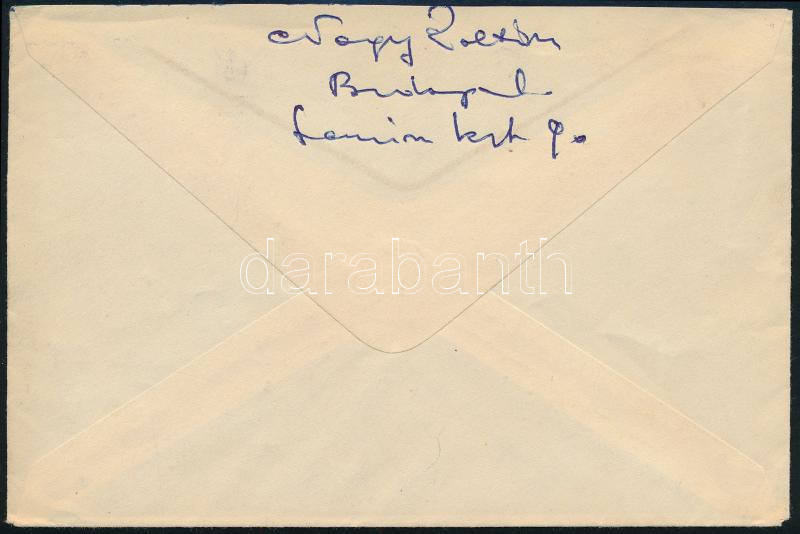 Nagy Zoltán
Budapest
Lenin krt 9.
darabanth